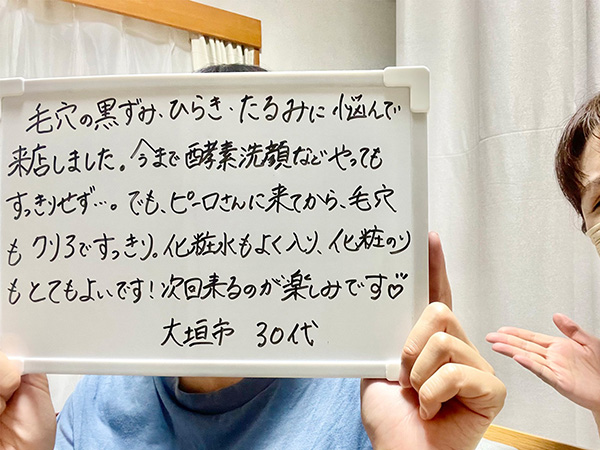 毛穴の黒ずみ、ひらき・たるみに悩んで
来店しました。今まで酵素洗顔などやっても
すっきりせず…。でも、ピーロさんに来てから、毛穴
もクリアですっきり。化粧水もよく入り、化粧のり
もとてもよいです！次回来るのが楽しみです♡
大垣市 30代